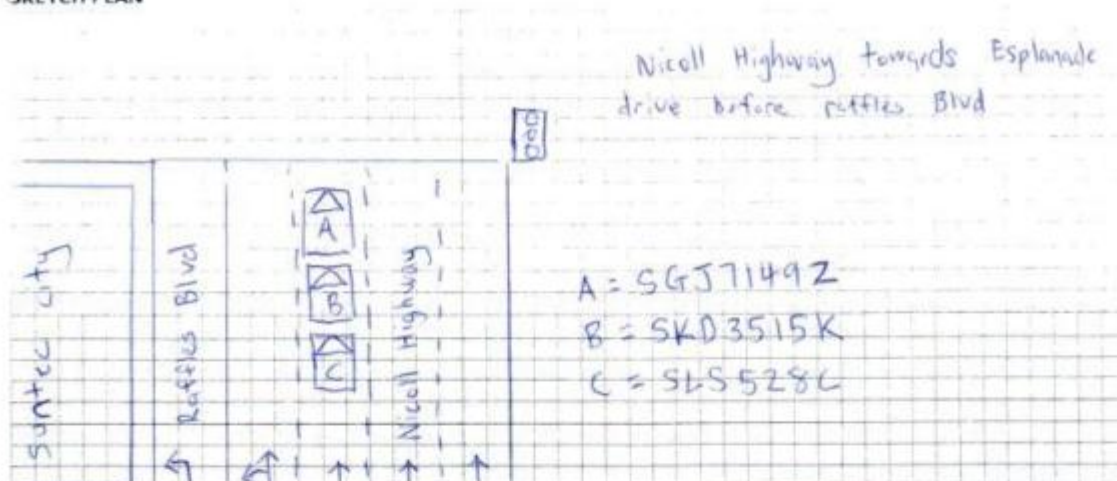 SKETCH PLAN
Nicoll Highway towards Esplanade
drive before raffles Blvd
A
B
C
Suntec city
Raffles Blvd
Nicoll Highway
A = SGJ7149Z
B = SKD3515K
C = SLS528C